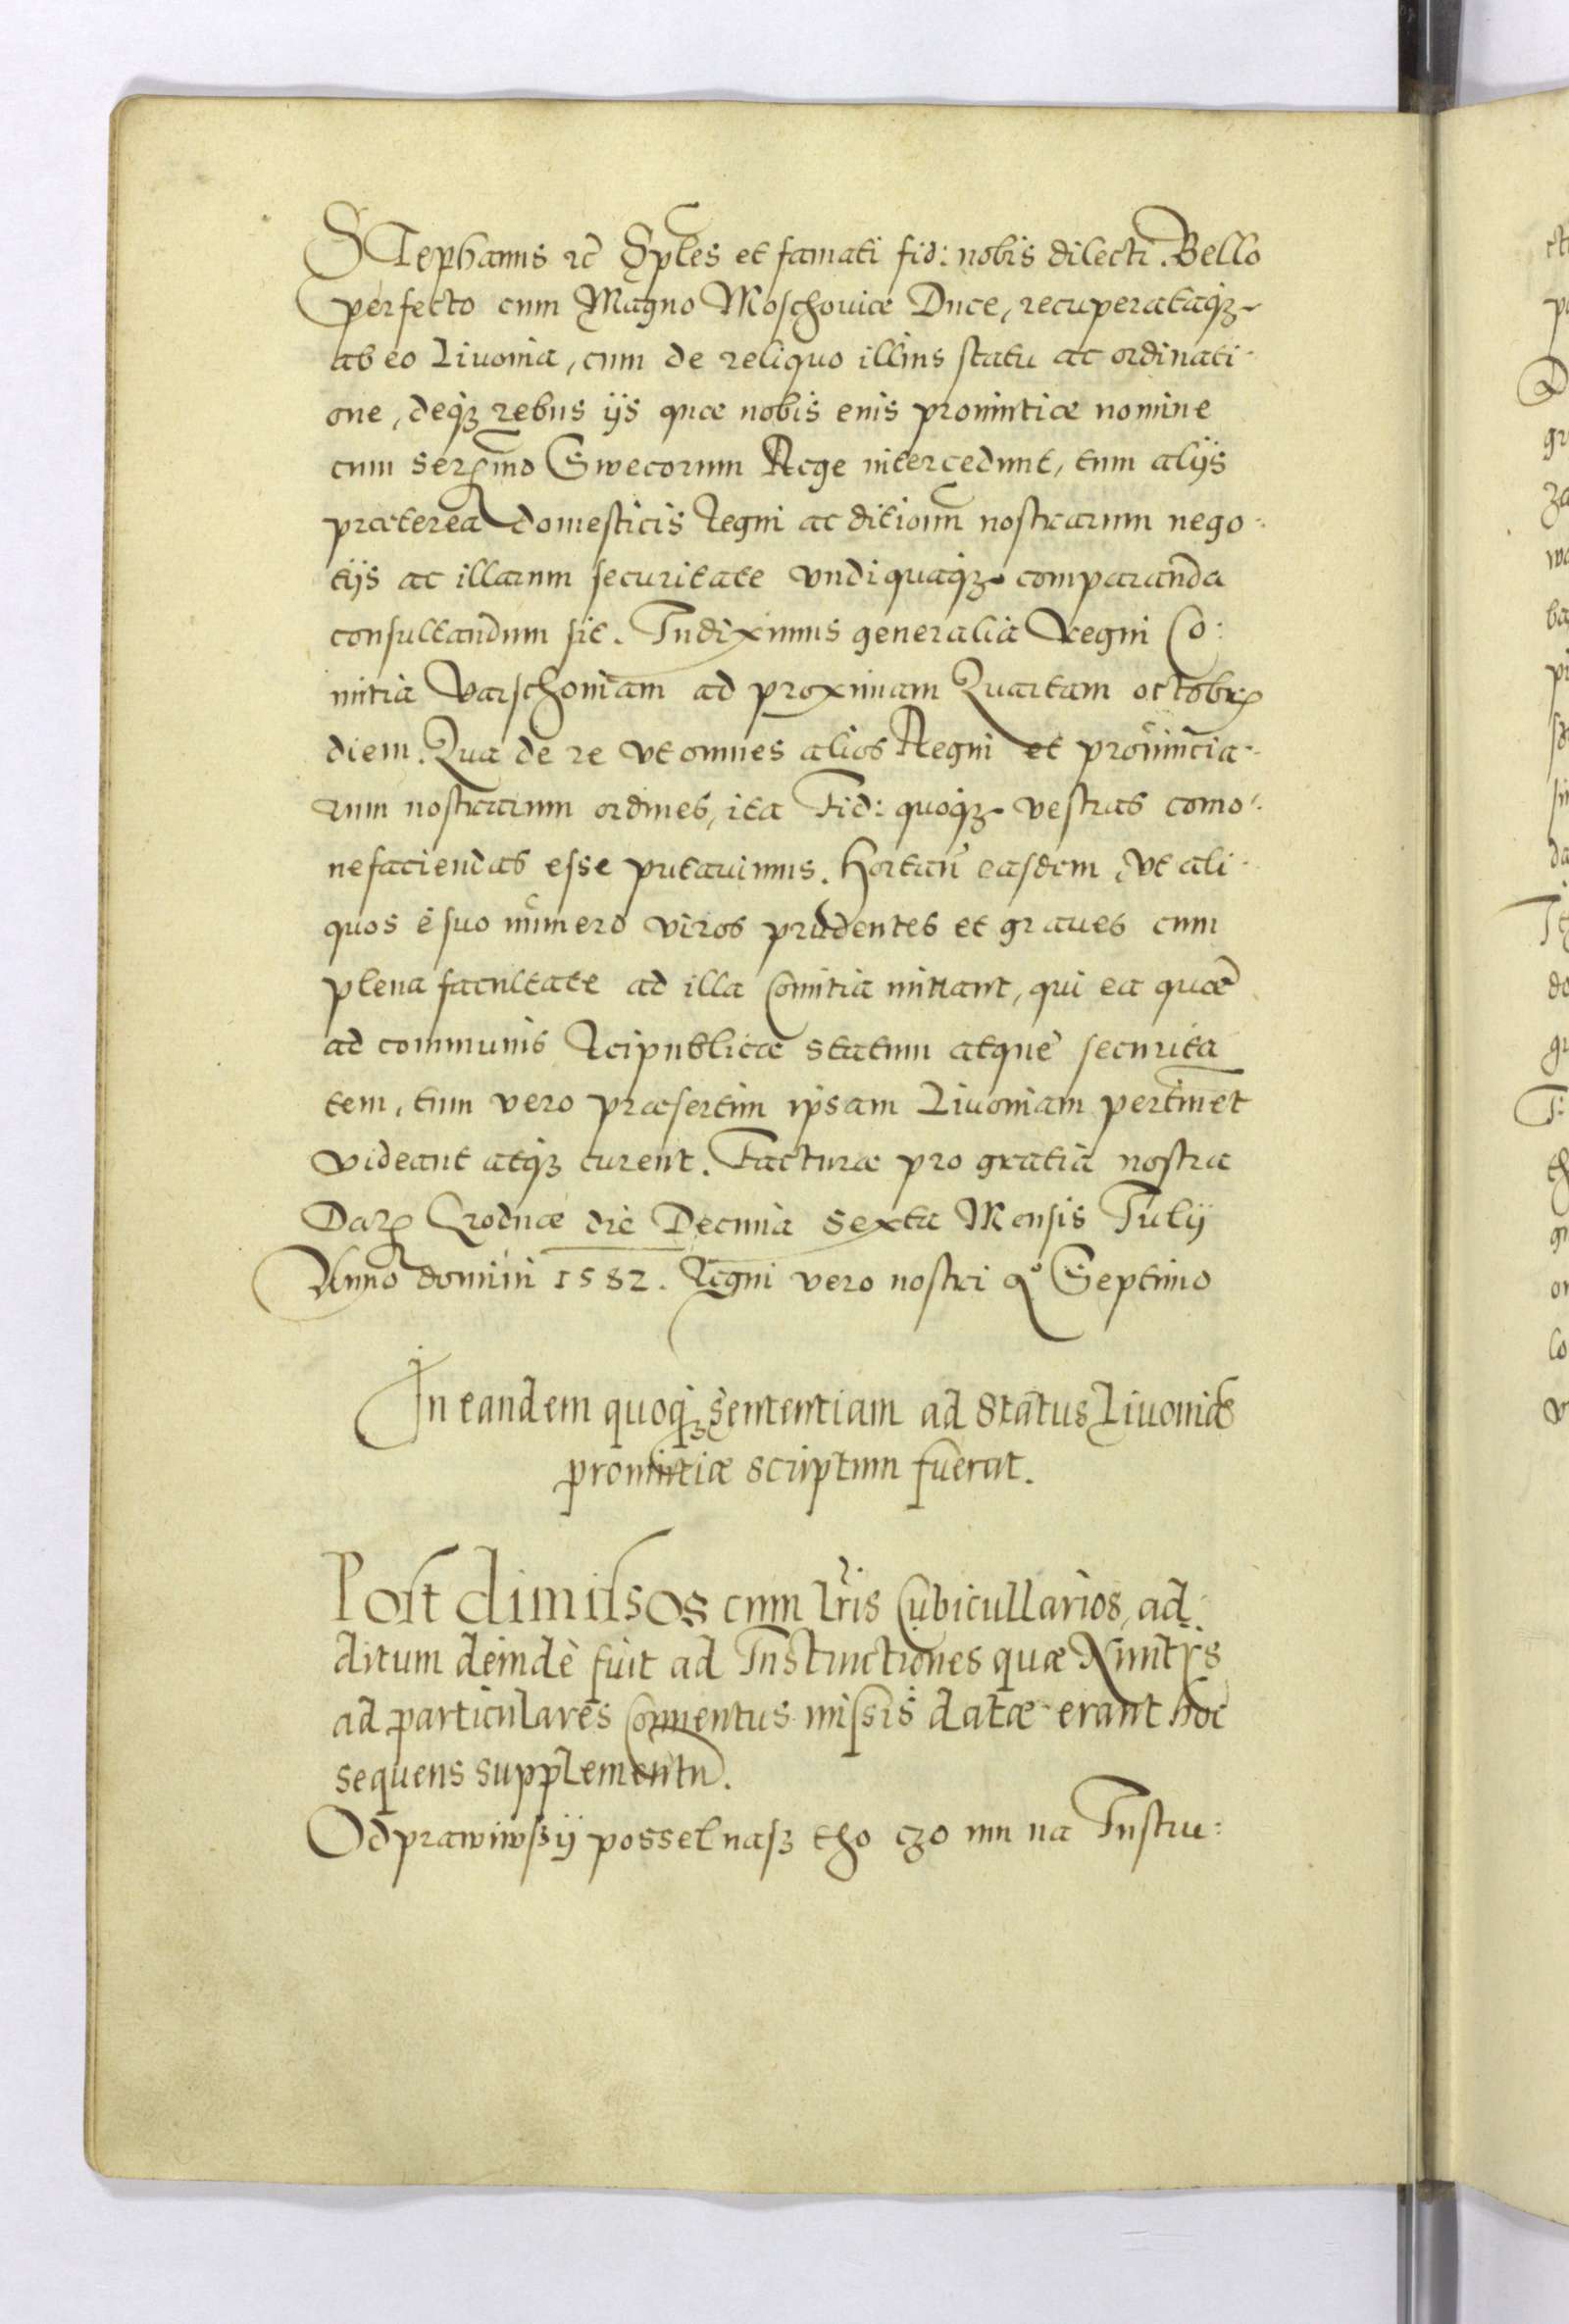 STephanus etc̃ Sp̃les et famati fid: nobis dilecti. Bello
perfecto cum Magno Moschouiæ Duce, recuperataq3
ab eo Liuonia, cum de reliquo illius statu ac ordinati-
one, deq3 rebus ijs quæ nobis eius prouintiæ nomine
cum Serẽmo Swecorum Rege intercedunt, tum alijs
præterea domesticis Regni ac ditionũ nostrarum nego:
tijs ac illarum securitate vndiquaq3 comparanda
consultandum sit. Indiximus generalia Regni Co:
mitia Varschouiam ad proximam Quartam octobr
diem. Qua de re vt omnes alios Regni et prouincia-
rum nostrarum ordines, ita Fid: quoq3 vestras como-
nefaciendas esse putauimus. Hortañ easdem, vt ali-
quos è suo numero viros prudentes et graues cum
plena facultate ad illa Comitia mittant, qui ea quæ
ad communis Reipublicæ statum atque securita
tem, tum vero præsertim ipsam Liuoniam pertinet
videant atq3 curent. Facturæ pro gratia nostra
Dat Grodnæ die Decima Sexta Mensis Julij
Anno domini 1582. Regni vero nostri Aº Septimo
In eandem quoq3 sententiam ad Status Liuoniæ
prouintiæ scriptum fuerat.
Post dimissos cum lr̃is Cubicullarios, ad:
ditum deindè fuit ad Instructiones quæ Nuntys
ad particulares Conuentus missis datæ erant hoc
sequens supplementũ.
Odprawiwssÿ possel nasz tho czo mu na Instru: